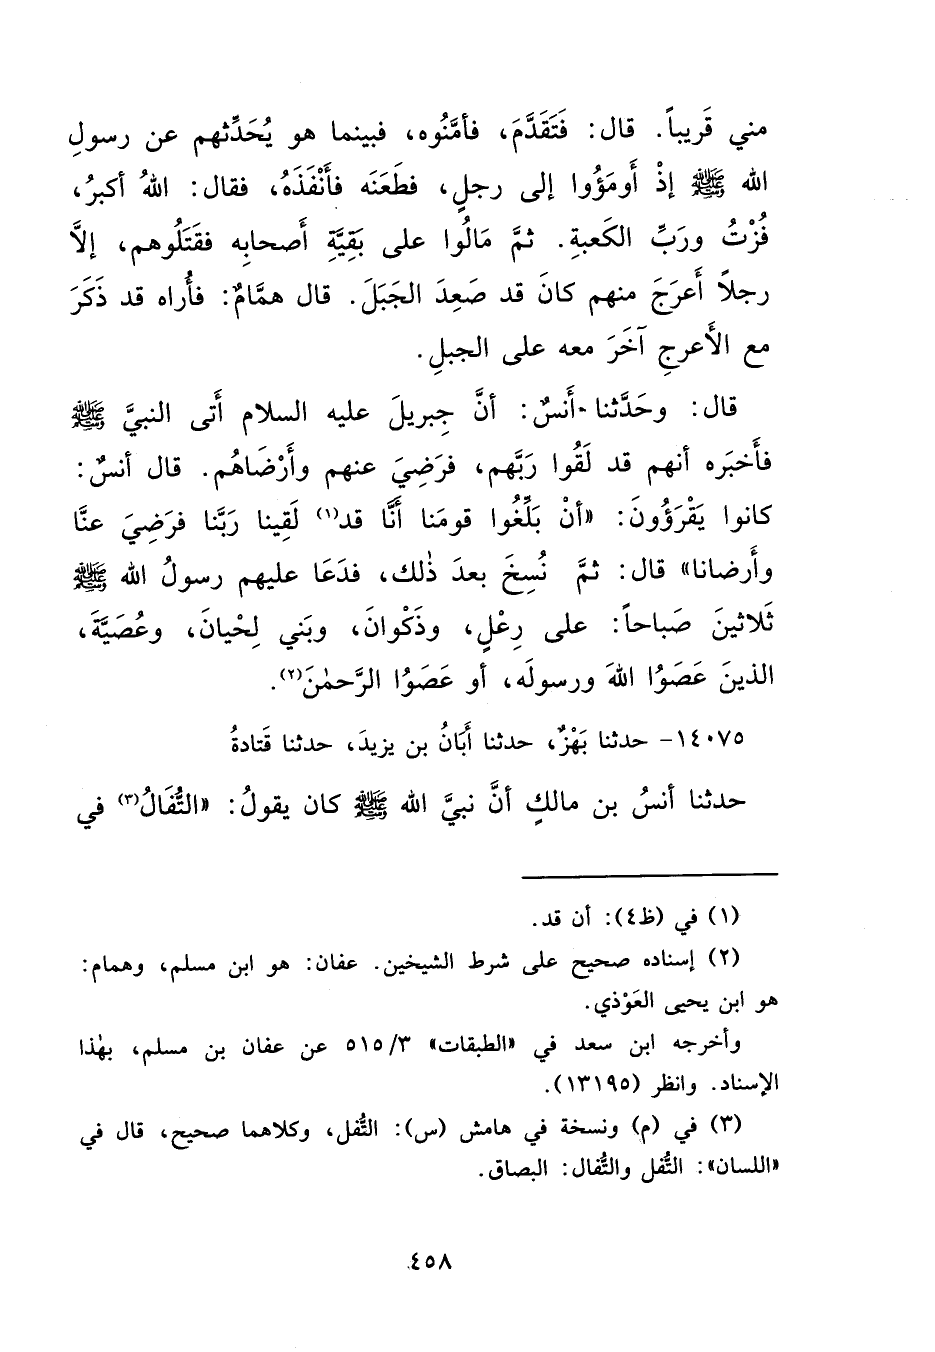 مني قَريباً. قال: فَتَقَدَّمَ، فأمَّنُوه، فبينما هو يُحَدِّثهم عن رسولِ
الله ﷺ إذْ أَومَؤُوا إلى رجلٍ، فطَعَنَه فأَنْفَذَهُ، فقال: اللهُ أكبرُ،
فُزْتُ وربِّ الكَعبةِ. ثمَّ مَالُوا على بَقِيَّةِ أَصحابِه فقَتَلُوهم، إلاَّ
رجلاً أَعرَجَ منهم كانَ قد صَعِدَ الجَبَلَ. قال همَّامٌ: فأُراه قد ذَكَرَ
مع الأَعرجِ آخَرَ معه على الجبلِ.
قال: وحَدَّثنا أَنسٌ: أنَّ جِبريلَ عليه السلام أَتى النبيَّ ﷺ
فأَخبَره أنهم قد لَقُوا رَبَّهم، فرَضِيَ عنهم وأَرْضَاهُم. قال أنسٌ:
كانوا يَقْرَؤُونَ: «أنْ بَلِّغُوا قومَنا أَنَّا قد(١) لَقِينا رَبَّنا فرَضِيَ عنَّا
وأَرضانا» قال: ثمَّ نُسِخَ بعدَ ذٰلك، فدَعَا عليهم رسولُ الله ﷺ
ثَلاثينَ صَباحاً: على رِعْلٍ، وذَكْوانَ، وبَني لِحْيانَ، وعُصَيَّةَ،
الذينَ عَصَوُا اللهَ ورسولَه، أو عَصَوُا الرَّحمٰنَ(٢).
١٤٠٧٥- حدثنا بَهْزٌ، حدثنا أَبَانُ بن يزيدَ، حدثنا قَتادةُ
حدثنا أنسُ بن مالكٍ أنَّ نبيَّ الله ﷺ كان يقولُ: «التُّفَالُ(٣) في
(١) في (ظ٤): أن قد.
(٢) إسناده صحيح على شرط الشيخين. عفان: هو ابن مسلم، وهمام:
هو ابن يحيى العَوْذي.
وأخرجه ابن سعد في «الطبقات» ٥١٥/٣ عن عفان بن مسلم، بهٰذا
الإسناد. وانظر (١٣١٩٥).
(٣) في (م) ونسخة في هامش (س): التُّفل، وكلاهما صحيح، قال في
«اللسان»: التُّفل والتُّفال: البصاق.
٤٥٨